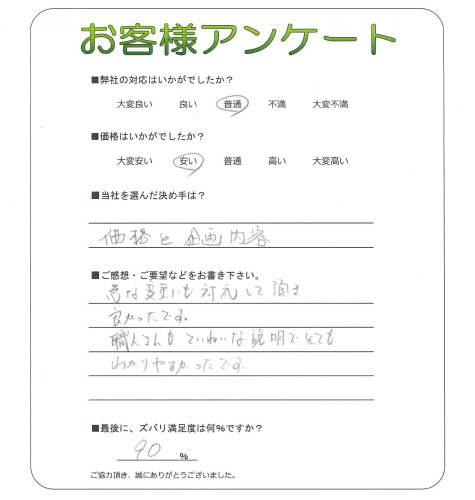 お客様アンケート
■弊社の対応はいかがでしたか？
大変良い　良い　普通　不満　大変不満
■価格はいかがでしたか？
大変安い　安い　普通　高い　大変高い
■当社を選んだ決め手は？
価格と企画内容
■ご感想・ご要望などをお書き下さい。
急な変更にも対応して頂き
良かったです。
職人さんもていねいな説明でとても
わかりやすかったです
■最後に、ズバリ満足度は何%ですか？
90 %
ご協力頂き、誠にありがとうございました。